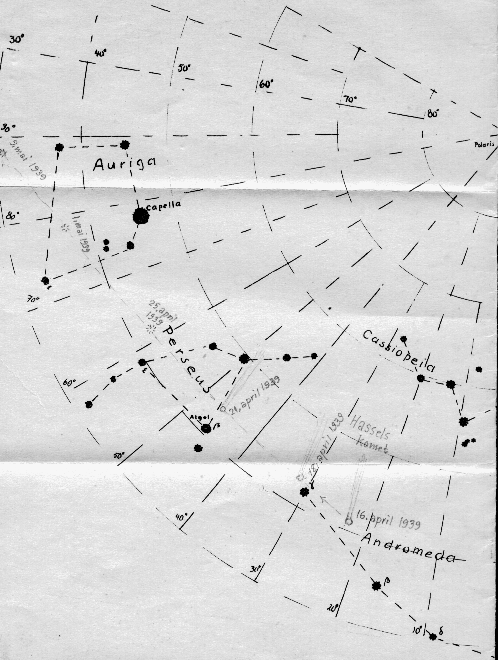 30°
40°
50°
60°
70°
80°
90°
Polaris
9. mai 1939
Auriga
Capella
80°
1. mai 1939
70°
25. april
1939
Perseus
Cassiopeila
60°
21. april 1939
Algol
β
18. april 1939
Hassels
komet
50°
16. april 1939
40°
Andromeda
30°
β
20°
10°
δ